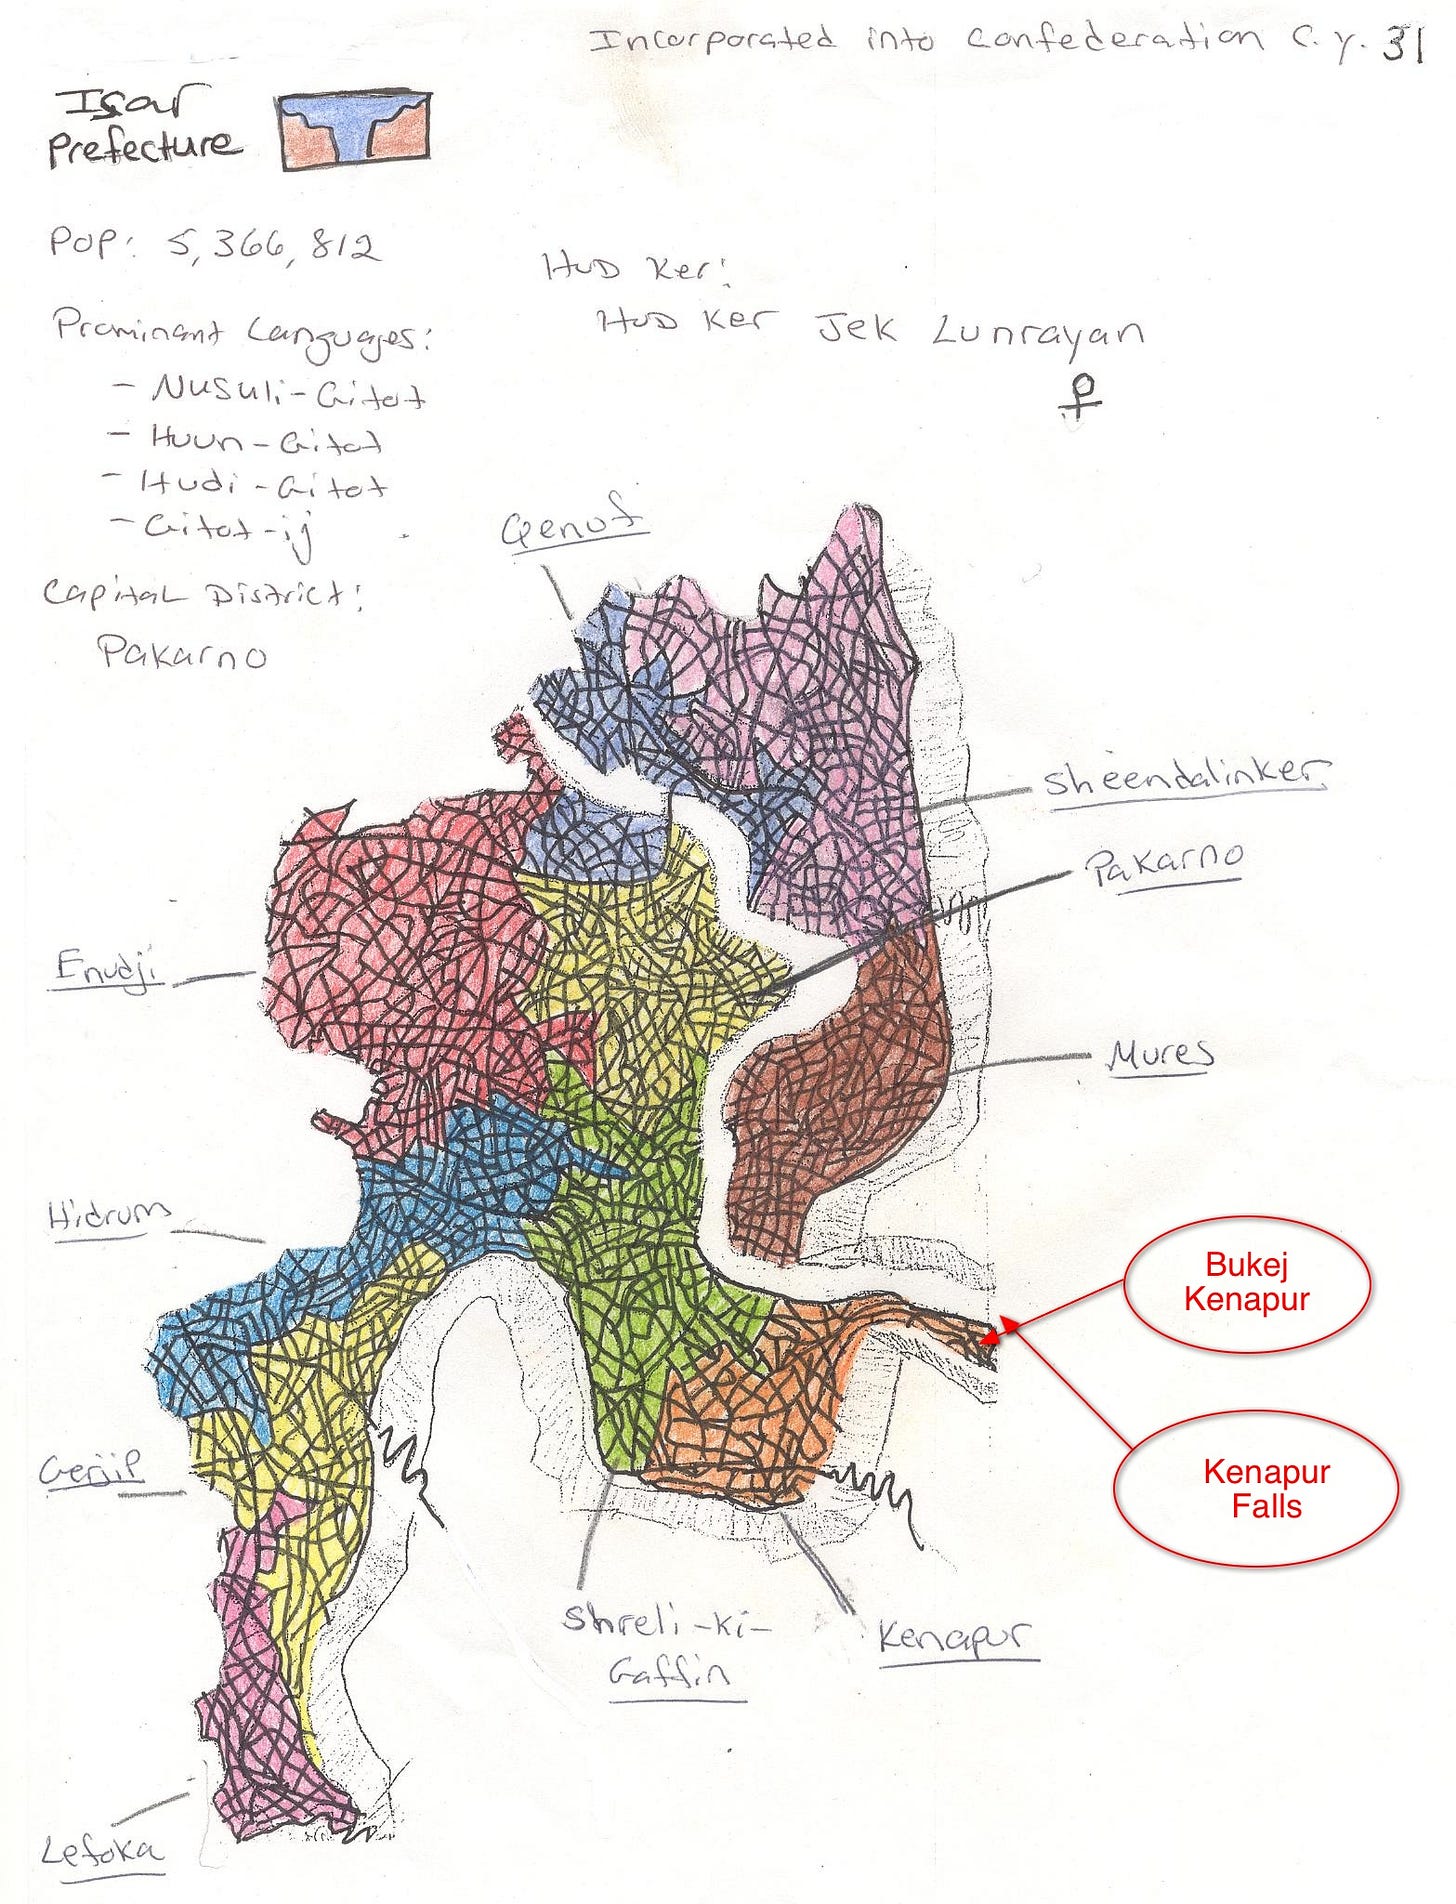 Incorporated into Confederation C.Y. 31
Isar
Prefecture
Pop: 5,366,812
Hud Ker:
Hud Ker Jek Lunrayan
Prominant Languages:
- Nusuli-Gitot
- Huun-Gitot
- Hudi-Gitot
- Gitot-ij
Capital District:
Pakarno
Qenof
Sheendalinker
Pakarno
Enudji
Mures
Hidrum
Bukej
Kenapur
Kenapur
Falls
Shreli-ki-
Gaffin
Kenapur
Lefoka